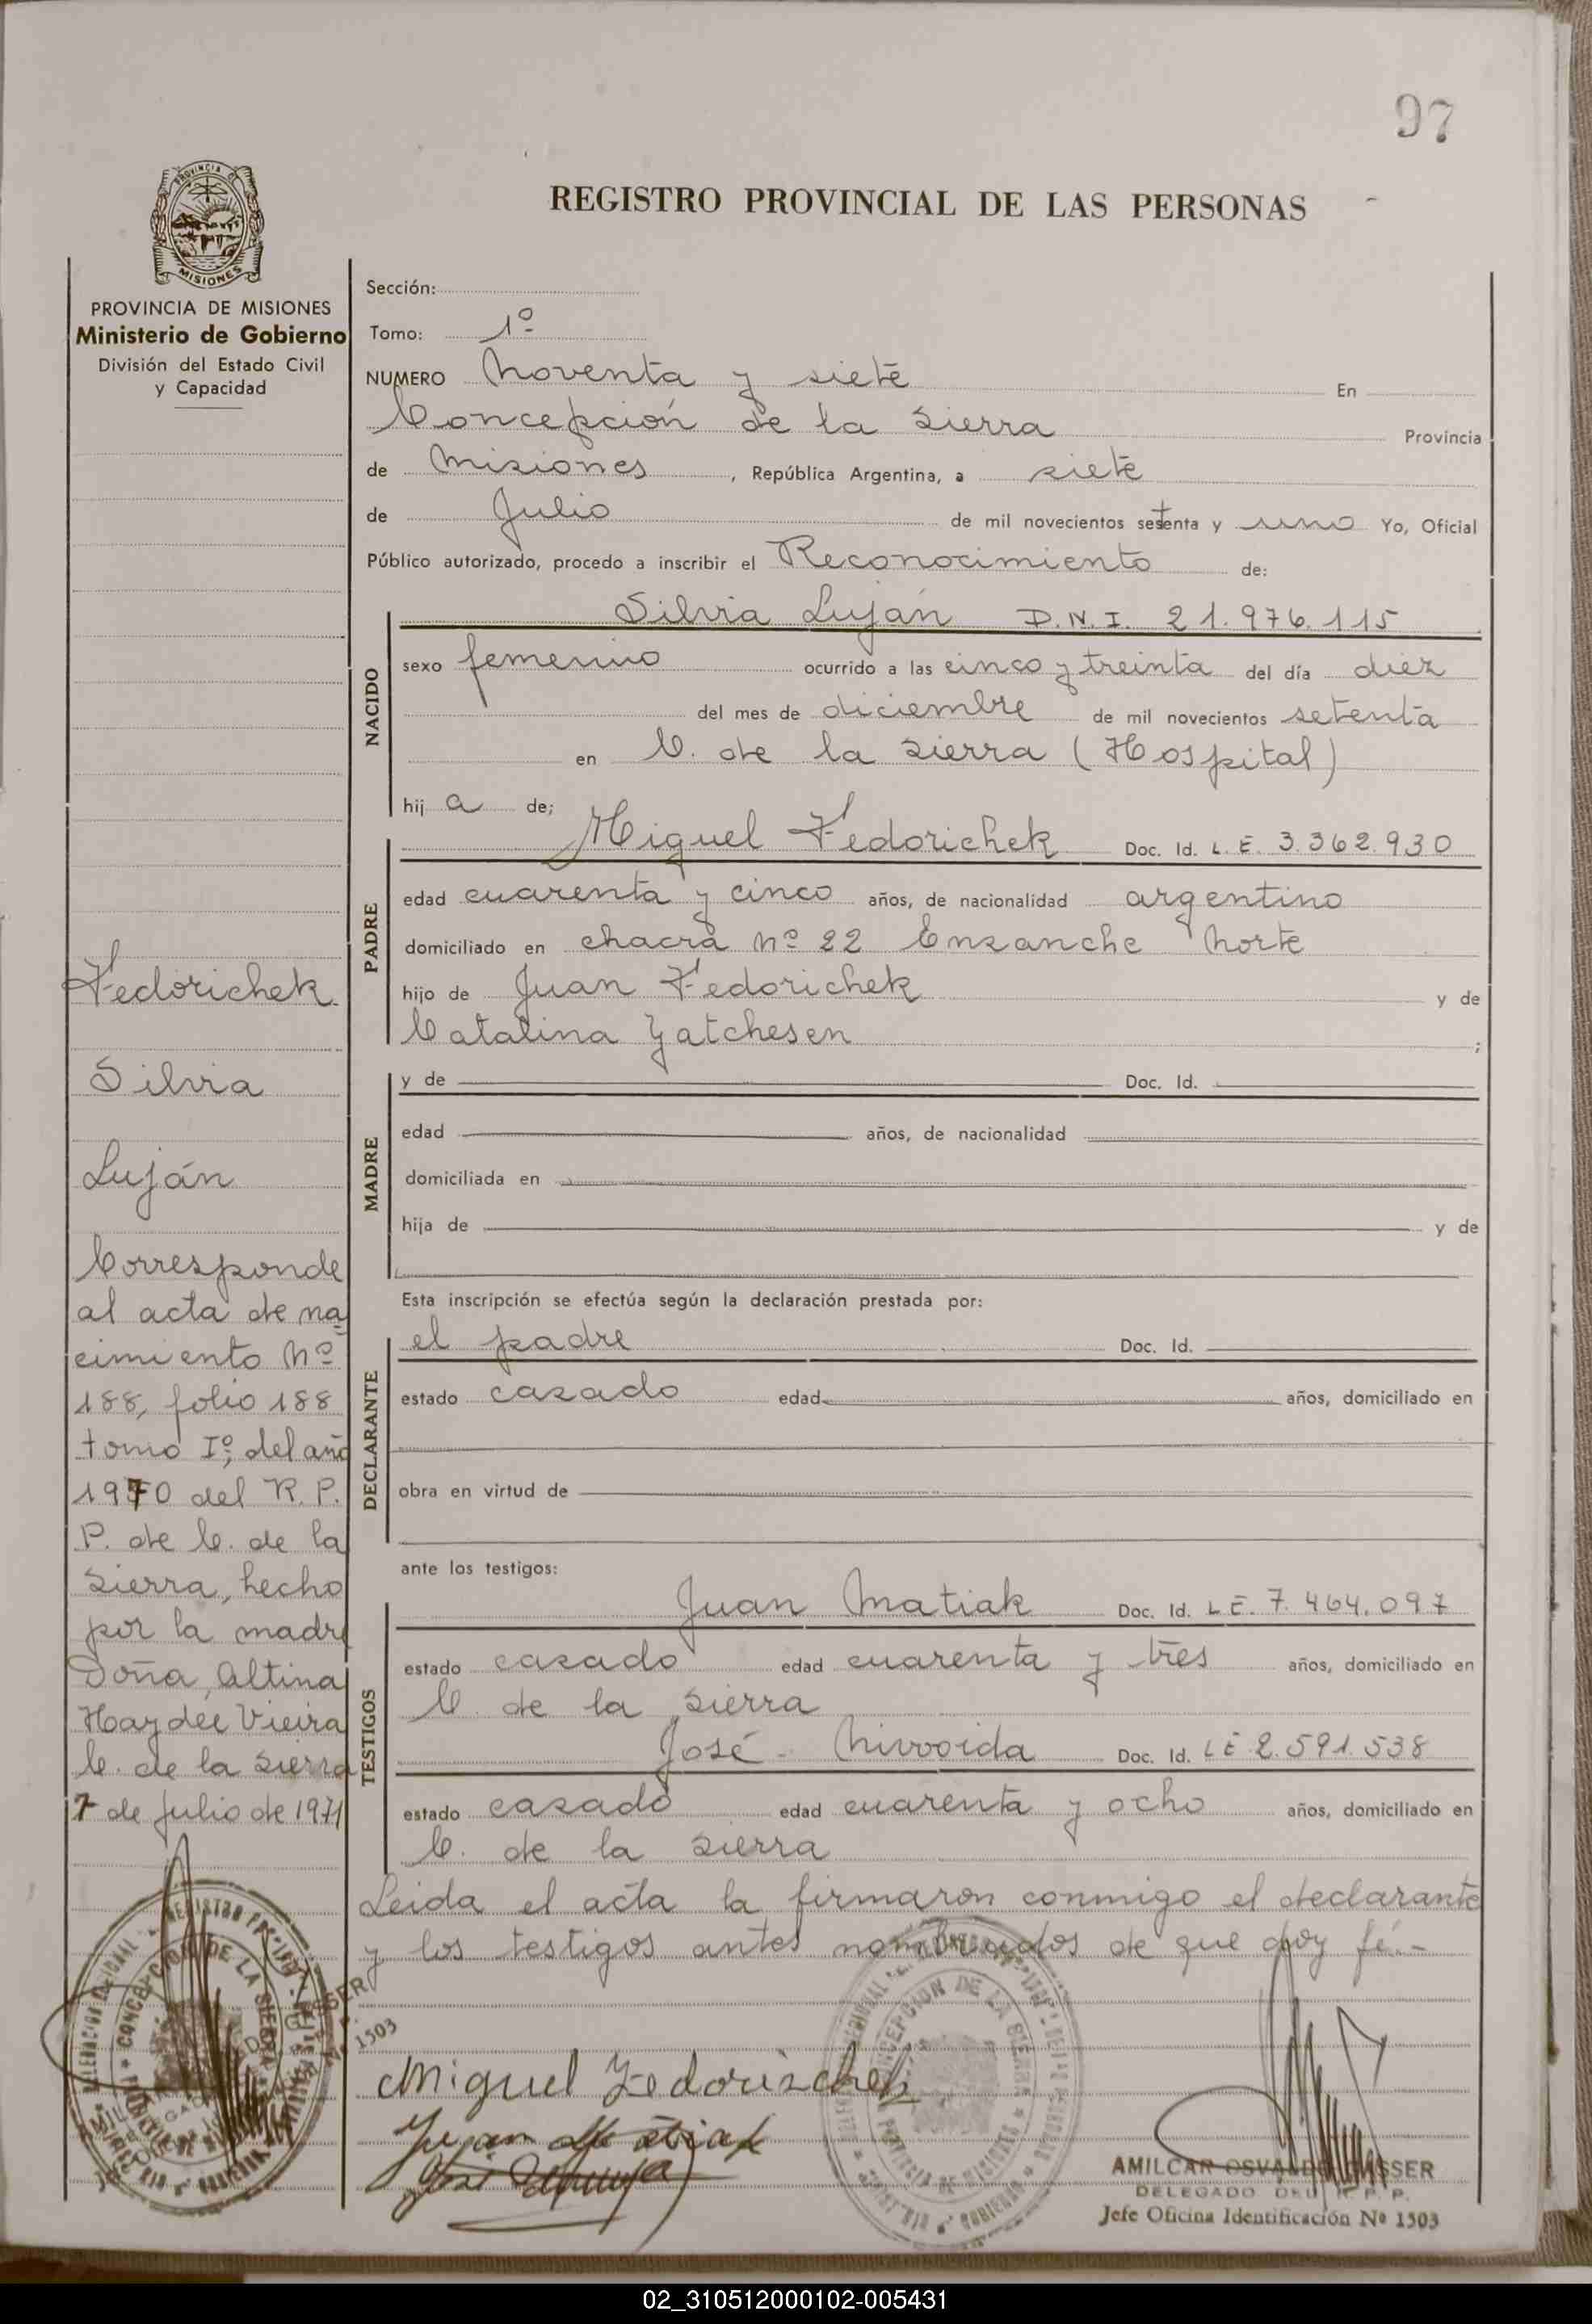 97
REGISTRO PROVINCIAL DE LAS PERSONAS
PROVINCIA
MISIONES
PROVINCIA DE MISIONES
Ministerio de Gobierno
División del Estado Civil
y Capacidad
Fedorichek
Silvia
Luján
Corresponde
al acta de na
cimiento Nº
188, folio 188
tomo Iº, del año
1970 del R. P.
P. de C. de la
Sierra, hecho
por la madre
Doña, Altina
Haydee Vieira
C. de la Sierra
7 de julio de 1971
Sección:
Tomo: 1º
NUMERO Noventa y siete En
Concepción de la Sierra Provincia
de Misiones, República Argentina, a siete
de Julio de mil novecientos setenta y uno Yo, Oficial
Público autorizado, procedo a inscribir el Reconocimiento de:
NACIDO
Silvia Luján D.N.I. 21.976.115
sexo femenino ocurrido a las cinco y treinta del día diez
del mes de diciembre de mil novecientos setenta
en C. de la Sierra (Hospital)
hij a de;
PADRE
Miguel Fedorichek Doc. Id. L.E. 3.362.930
edad cuarenta y cinco años, de nacionalidad argentino
domiciliado en chacra nº 22 Ensanche Norte
hijo de Juan Fedorichek y de
Catalina Yatchesen ;
MADRE
y de Doc. Id.
edad años, de nacionalidad
domiciliada en
hija de y de
Esta inscripción se efectúa según la declaración prestada por:
DECLARANTE
el padre Doc. Id.
estado casado edad años, domiciliado en
obra en virtud de
ante los testigos:
TESTIGOS
Juan Matiak Doc. Id. L.E. 7.464.097
estado casado edad cuarenta y tres años, domiciliado en
C. de la Sierra
José Doc. Id. L.E. 2.591.538
estado casado edad cuarenta y ocho años, domiciliado en
C. de la Sierra
Leida el acta la firmaron conmigo el declarante
y los testigos antes nombrados de que doy fé.-
CONCEPCION DE LA SIERRA
Miguel Fedorischek
Juan Matiak
José
AMILCAR OSVALDO GASSER
DELEGADO DEL R. P. P.
Jefe Oficina Identificación Nº 1503
02_310512000102-005431